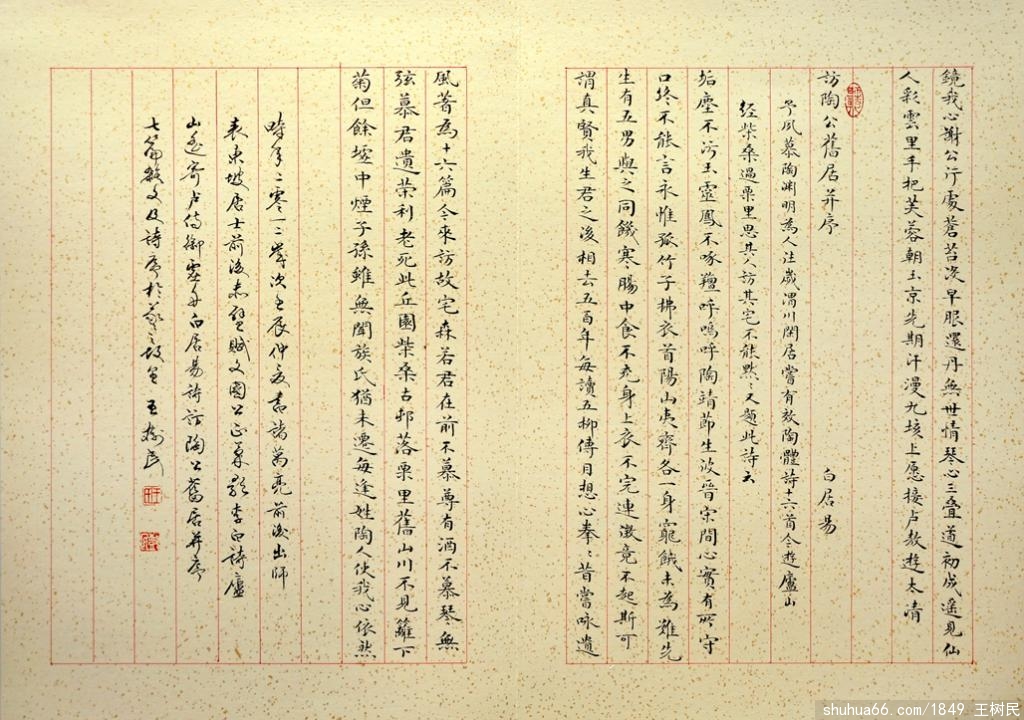 鏡我心謝公行處蒼苔没早服還丹無世情琴心三叠道初成遥見仙
人彩雲里手把芙蓉朝玉京先期汗漫九垓上愿接卢敖遊太清
訪陶公舊居并序
白居易
予夙慕陶渊明為人往歲渭川閑居嘗有效陶體詩十六首今遊廬山
经柴桑過栗里思其人訪其宅不能默々又題此詩云
垢塵不污玉靈鳳不啄羶呼嗚呼陶靖節生波晉宋間心實有所守
口終不能言永惟孤竹子拂衣首陽山夷齊各一身窮餓未為難先
生有五男與之同饑寒腸中食不充身上衣不完連徵竟不起斯可
謂真賢我生君之後相去五百年每讀五柳傳目想心拳々昔嘗咏遺
風著為十六篇今來訪故宅森若君在前不慕尊有酒不慕琴無
弦慕君遺荣利老死此丘園柴桑古邨落栗里舊山川不見籬下
菊但餘墟中煙子孫雖無聞族氏猶未遷每逢姓陶人使我心依然
時年二零一二岁次壬辰仲夏書諸葛亮前後出師
表東坡居士前後赤壁賦文國公正氣歌李白詩廬
山遥寄卢侍御虚舟白居易詩訪陶公舊居并序
七篇散文及詩序於 王樹民
shuhua66.com/1849 王树民